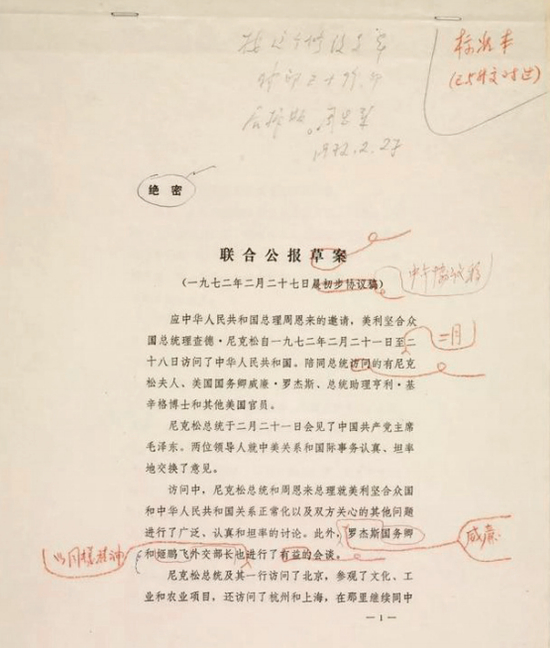 标准本
(已与外文对过)
1972.2.27
绝密
联合公报草案
(一九七二年二月二十七日晨初步协议稿)
应中华人民共和国总理周恩来的邀请,美利坚合众
国总统理查德·尼克松自一九七二年二月二十一日至二
二月
十八日访问了中华人民共和国。陪同总统访问的有尼克
松夫人、美国国务卿威廉·罗杰斯、总统助理亨利·基
辛格博士和其他美国官员。
尼克松总统于二月二十一日会见了中国共产党主席
毛泽东。两位领导人就中美关系和国际事务认真、坦率
地交换了意见。
访问中,尼克松总统和周恩来总理就美利坚合众国
和中华人民共和国关系正常化以及双方关心的其他问题
进行了广泛、认真和坦率的讨论。此外,罗杰斯国务卿
威廉
以同样精神
和姬鹏飞外交部长也进行了有益的会谈。
尼克松总统及其一行访问了北京,参观了文化、工
业和农业项目,还访问了杭州和上海,在那里继续同中
— 1 —